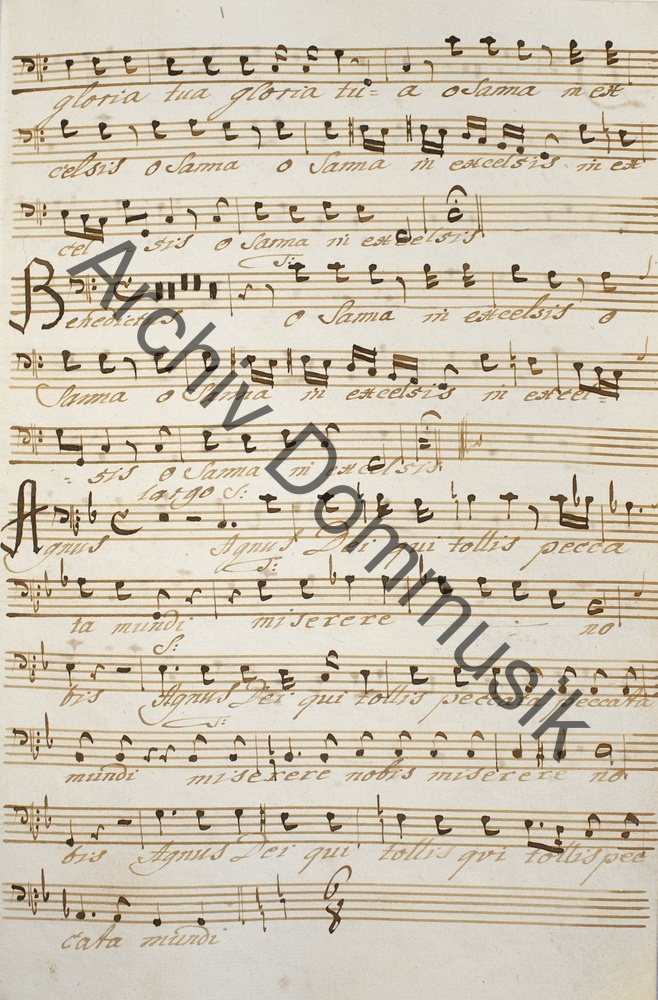 gloria tua gloria tu= a oSanna in ex
celsis o Sanna o Sanna in excelsis in ex
cel sis o Sanna in excelsis
S:
Benedictus o Sanna in excelsis o
Sanna o Sanna in excelsis in excel-
- sis o Sanna in excelsis
largo S:
Agnus Agnus Dei qui tollis pecca
S:
ta mundi miserere no
S:
bis Agnus Dei qui tollis peccata peccata
S:
mundi miserere nobis miserere no
bis Agnus Dei qui tollis qvi tollis pec
cata mundi
6
8
Archiv Dommusik